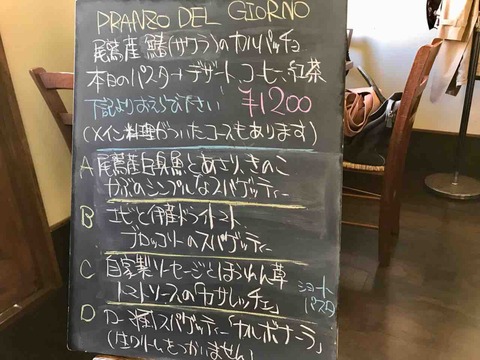 PRANZO DEL GIORNO
尾鷲産 鰆(サワラ)のカルパッチョ
本日のパスタ+デザート、コーヒー、紅茶
下記よりおえらび下さい ¥1200
(メイン料理がついたコースもあります)
A 尾鷲産白身魚とあさり、きのこ
かぶのシンプルなスパゲッティー
B エビと伊産ドライトマト
ブロッコリーのスパゲッティー
C 自家製ソーセージとほうれん草
トマトソースの「カサレッチェ」 ショートパスタ
D ローマ風スパゲッティー「カルボナーラ」
(生クリームをつかいません)